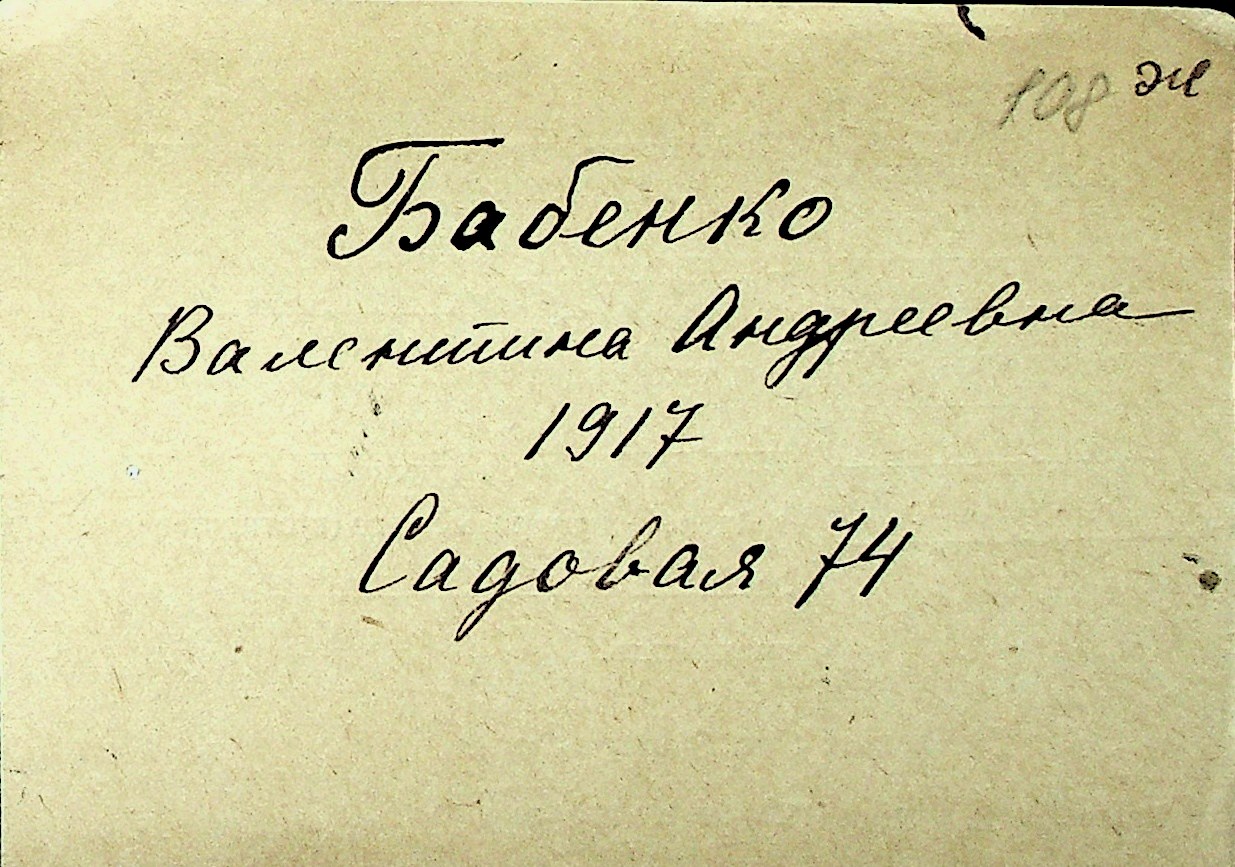 108 ж
Бабенко
Валентина Андреевна
1917
Садовая 74